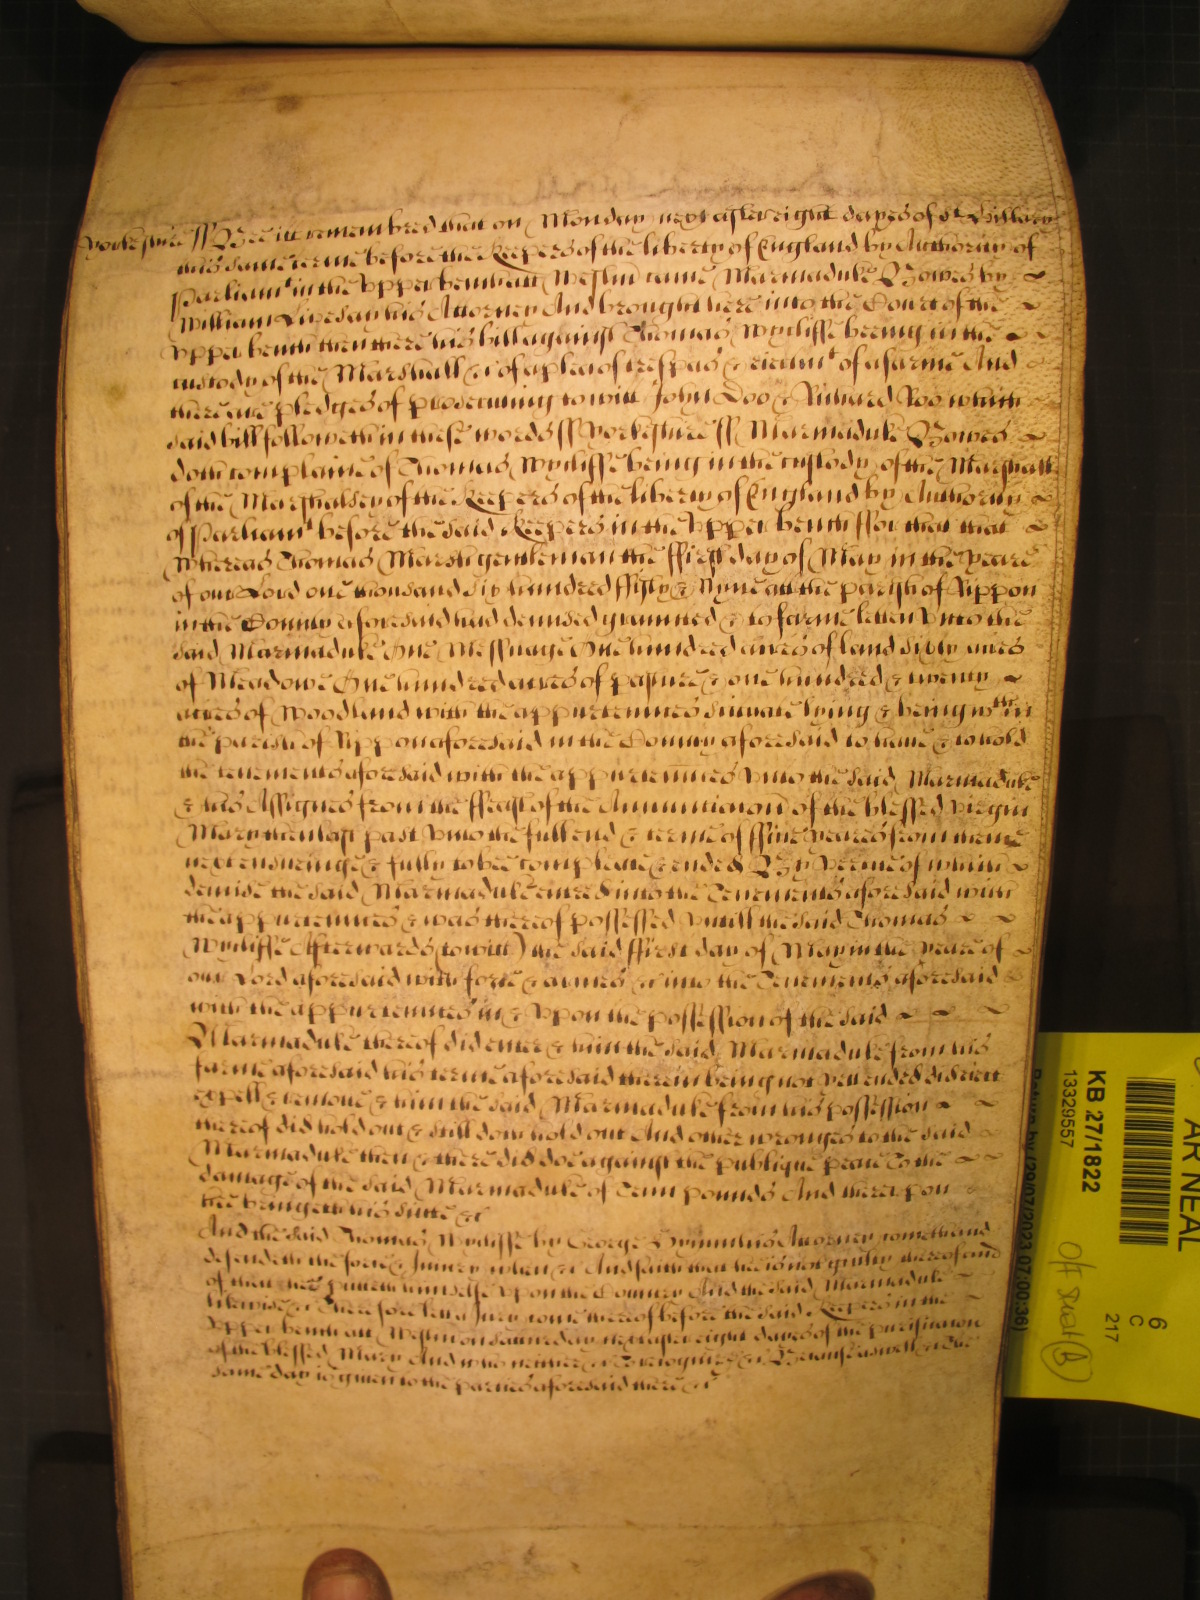 Yorkeshire ss Bee itt remembred that on Monday next after eight dayes of St Hillary
this same terme before the Keepers of the liberty of England by Authority of
Parliamt in the Upper bench att Westmr came Marmaduke Bowes by
William Livesay his Attorney And brought here into the Court of the
upper bench then there his bill against Thomas Wycliffe beeing in the
custody of the Marshall &c of a plea of trespas & eiecmt of a farme And
there are pledges of prosecuting to witt John Doo & Richard Roo which
said bill followeth in these words ss Yorkeshire ss Marmaduke Bowes
doth complaine of Thomas Wycliffe being in the custody of the Marshall
of the Marshalsey of the Keepers of the liberty of England by Authority
of Parliamt before the said Keepers in the Upper bench ffor that that
Whereas Thomas Marsh gentleman the ffirst day of May in the yeare
of our Lord one thousand six hundred ffifty & Nyne att the parish of Rippon
in the County aforesaid had demised graunted & to farme letten unto the
said Marmaduke One Messuage One hundred acres of land sixty acres
of Meadowe One hundred acres of pasture & one hundred & twenty
acres of Woodland with the appurtennces scituate lying & being wthin
the parish of Rippon aforesaid in the County aforesaid to have & to hold
the tenements aforesaid with the appurtennces unto the said Marmaduke
& his Assignes from the ffeast of the Annunciacon of the blessed virgin
Mary then last past unto the full end & terme of ffive yeares from thence
next ensueinge & fully to bee compleate & ended By vertue of which
demise the said Marmaduke entred into the Tenements aforesaid with
the appurtennces & was thereof possessed untill the said Thomas
Wycliffe Afterwards (to witt) the said ffirst day of May in the yeare of
our Lord aforesaid with force & armes &c into the Tenements aforesaid
with the appurtennces in & upon the possession of the said
Marmaduke thereof did enter & him the said Marmaduke from his
farme aforesaid his terme aforesaid therein being not yett ended did eiect
expell & remove & him the said Marmaduke from his possession
thereof did hold out & still doth hold out And other wronges to the said
Marmaduke then & there did doe against the publique peace To the
damage of the said Marmaduke of Tenn pounds And thereupon
hee bringeth his suite &c
And the said Thomas Wycliffe by George Attorney cometh and
defendeth the force & Iniury when &c And saith that hee is not guilty thereof and
of this hee putteth himselfe upon the Country And the said Marmaduke
likewise &c Therefore lett a Jury come thereof before the said Keepers in the
Upper bench att Westmr on Saturday next after eight dayes of the purificacon
of the blessed Mary And who neither &c To recognize &c Because aswell &c The
same day is given to the parties aforesaid there &c
AR NEAL
KB 27/1822
13329557
6
C
217
Return by (29/07/2023 07:00:36)